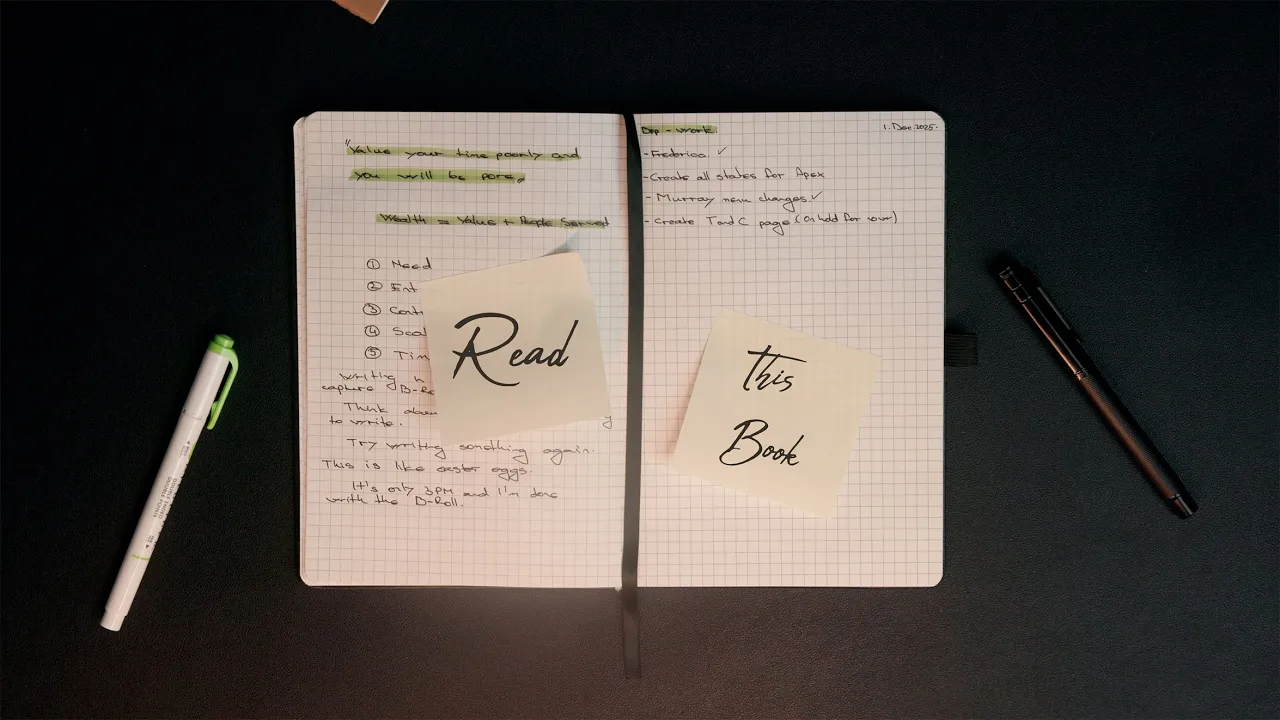 "Value your time poorly and
you will be pore„
Wealth = Value + People Served
① Need
② Ent
③ Cont
④ Scal
⑤ Tim
Writing
capture B-Ro
Think
to write.
y
Try writing something again.
This is like easter eggs.
It's only 3PM and I'm done
with the B-Roll.
Read
Dep - work
1. Dec. 2025.
- Frederico ✓
- Create all states for Apex
- Murray new changes ✓
- Create T and C page (On hold for now)
This
Book